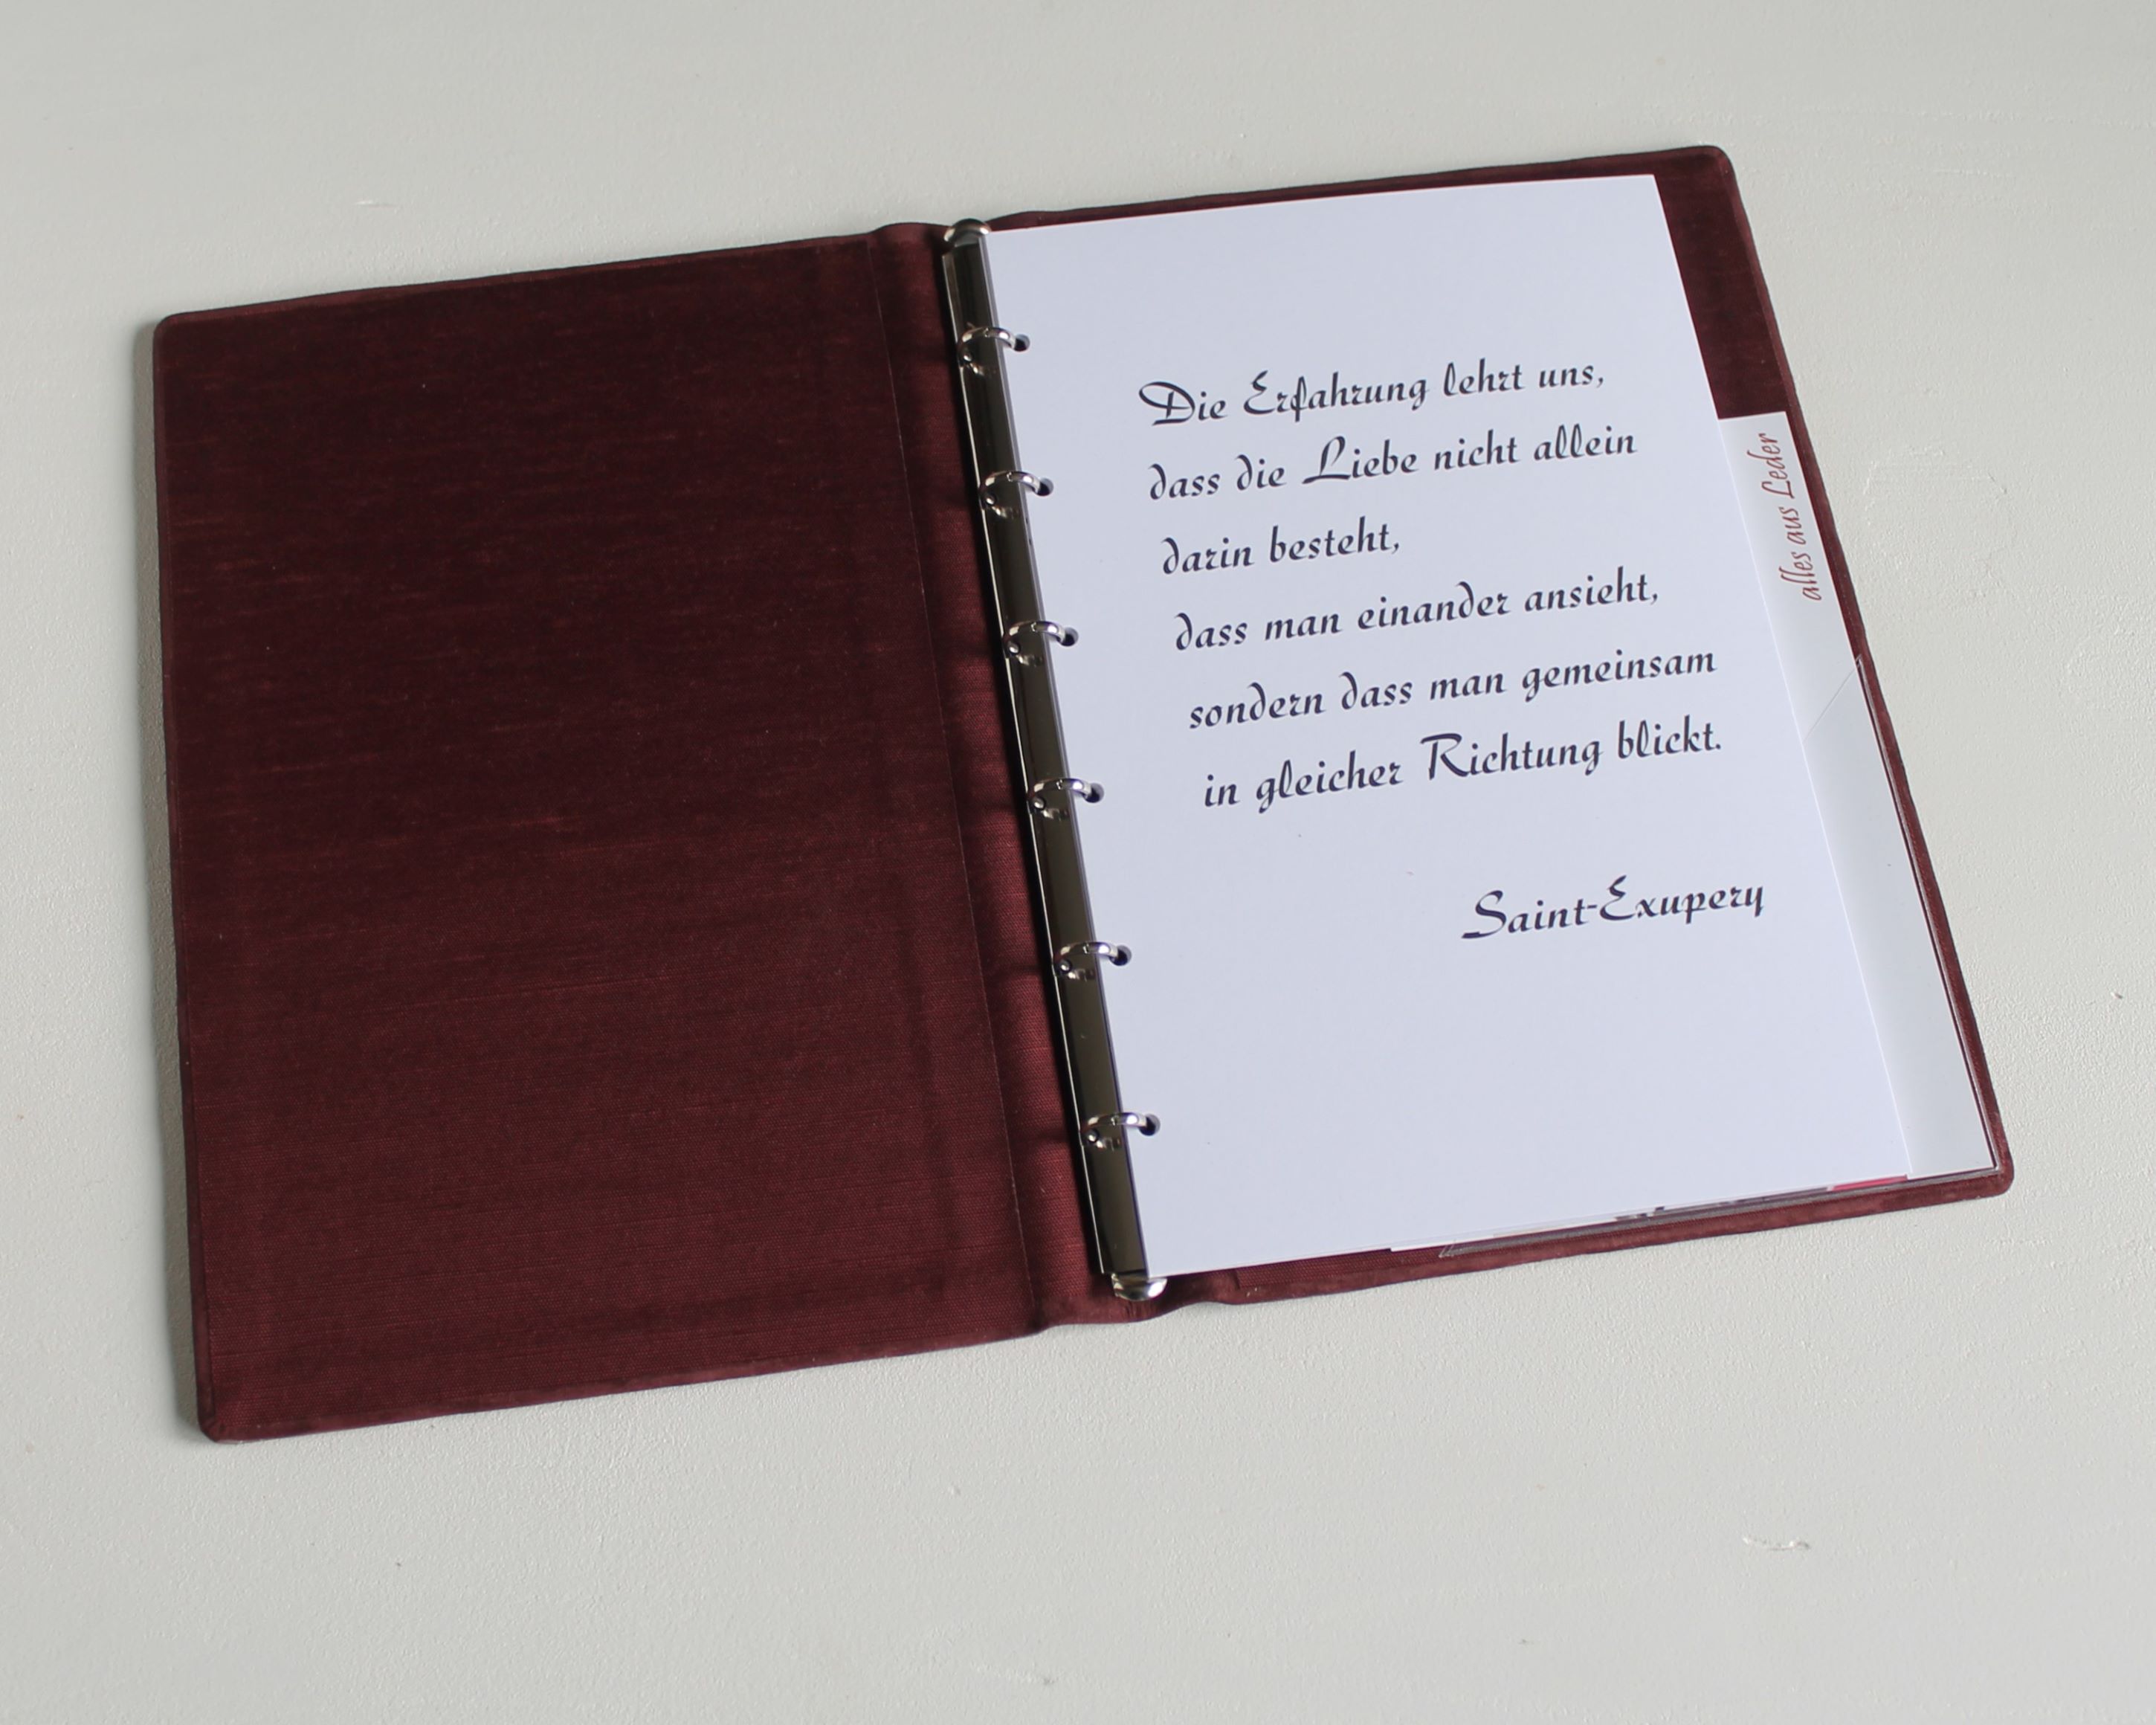 Die Erfahrung lehrt uns,
dass die Liebe nicht allein
darin besteht,
dass man einander ansieht,
sondern dass man gemeinsam
in gleicher Richtung blickt.
Saint-Exupery
alles aus Leder